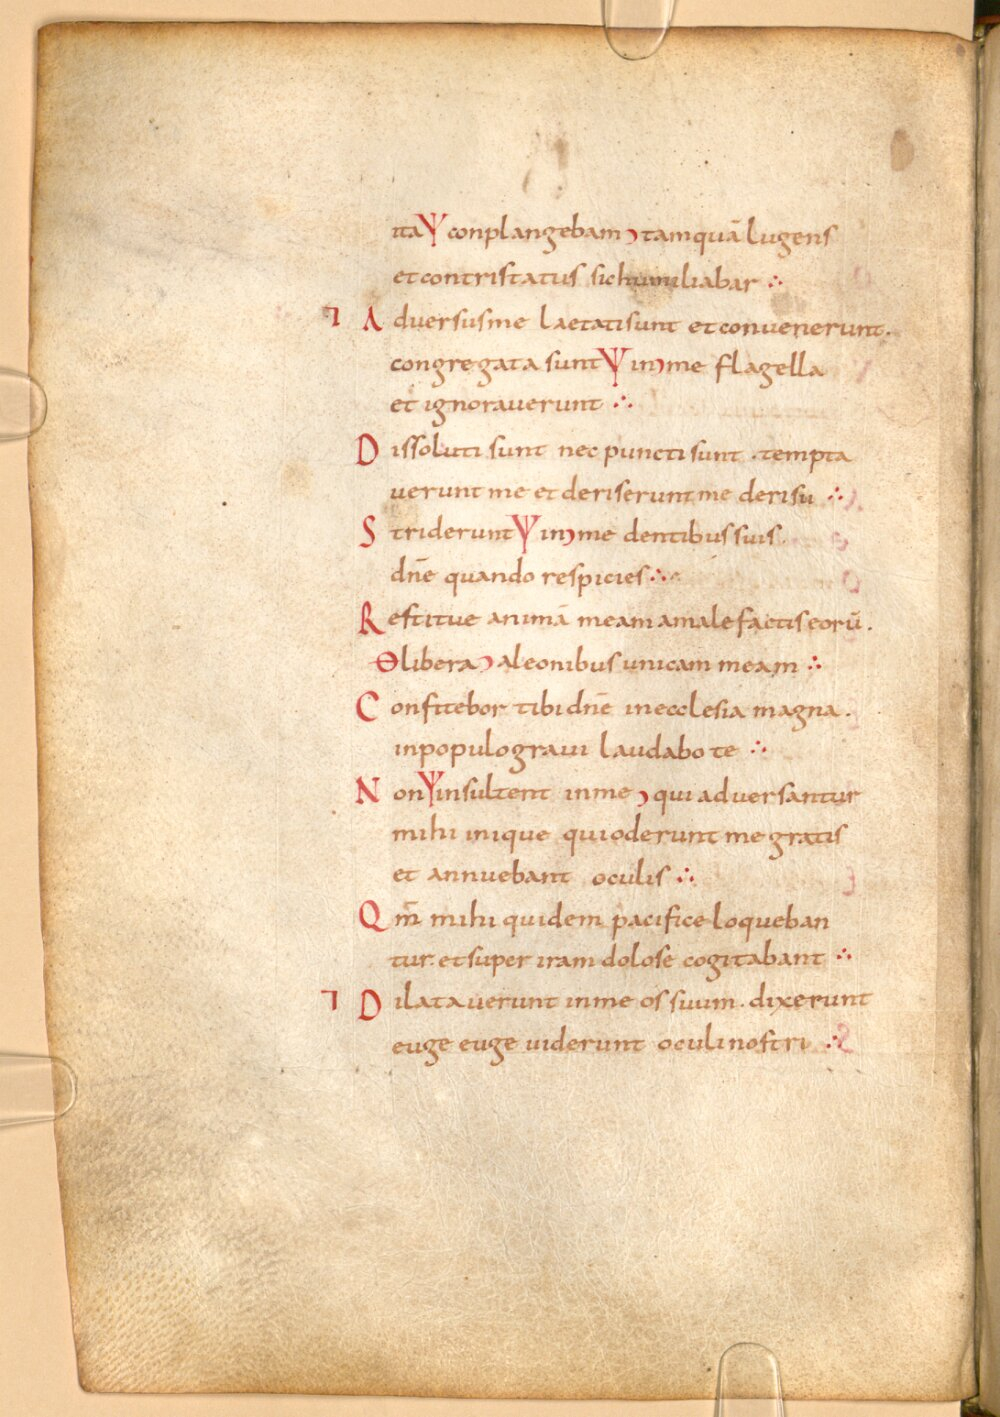 itaΨconplangebamͻtamquā lugens
et contristatus sic humiliabar ∴
⁊ Adversus me laetati sunt et convenerunt.
congregata suntΨinͻme flagella
et ignoraverunt ∴
Dissoluti sunt nec puncti sunt · tempta
verunt me et deriserunt me derisu ∴
StrideruntΨinͻme dentibus suis.
dn̄e quando respicies ∴
Restitue animā meam a malefactis eorū.
Θliberaͻa leonibus unicam meam ∴
Confitebor tibi dn̄e in ecclesia magna.
in populo gravi laudabo te ∴
NonΨinsultent in meͻqui adversantur
mihi inique qui oderunt me gratis
et annuebant oculis ∴
Qm̄ mihi quidem pacifice loqueban
tur. et super iram dolose cogitabant ∴
⁊ Dilataverunt in me os suum · dixerunt
euge euge viderunt oculi nostri ∴